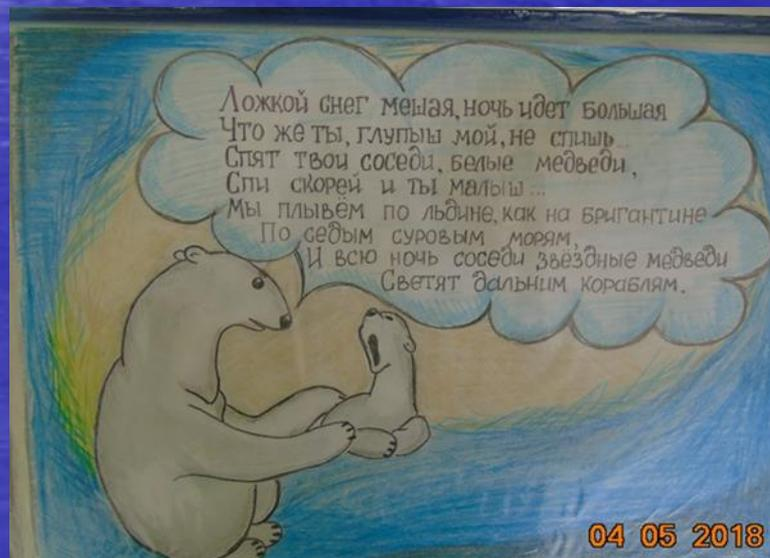 Ложкой снег мешая, ночь идет большая
Что же ты, глупыш мой, не спишь...
Спят твои соседи, белые медведи,
Спи скорей и ты малыш...
Мы плывём по льдине, как на бригантине
По седым суровым морям,
И всю ночь соседи звёздные медведи
Светят дальним кораблям.
04 05 2018